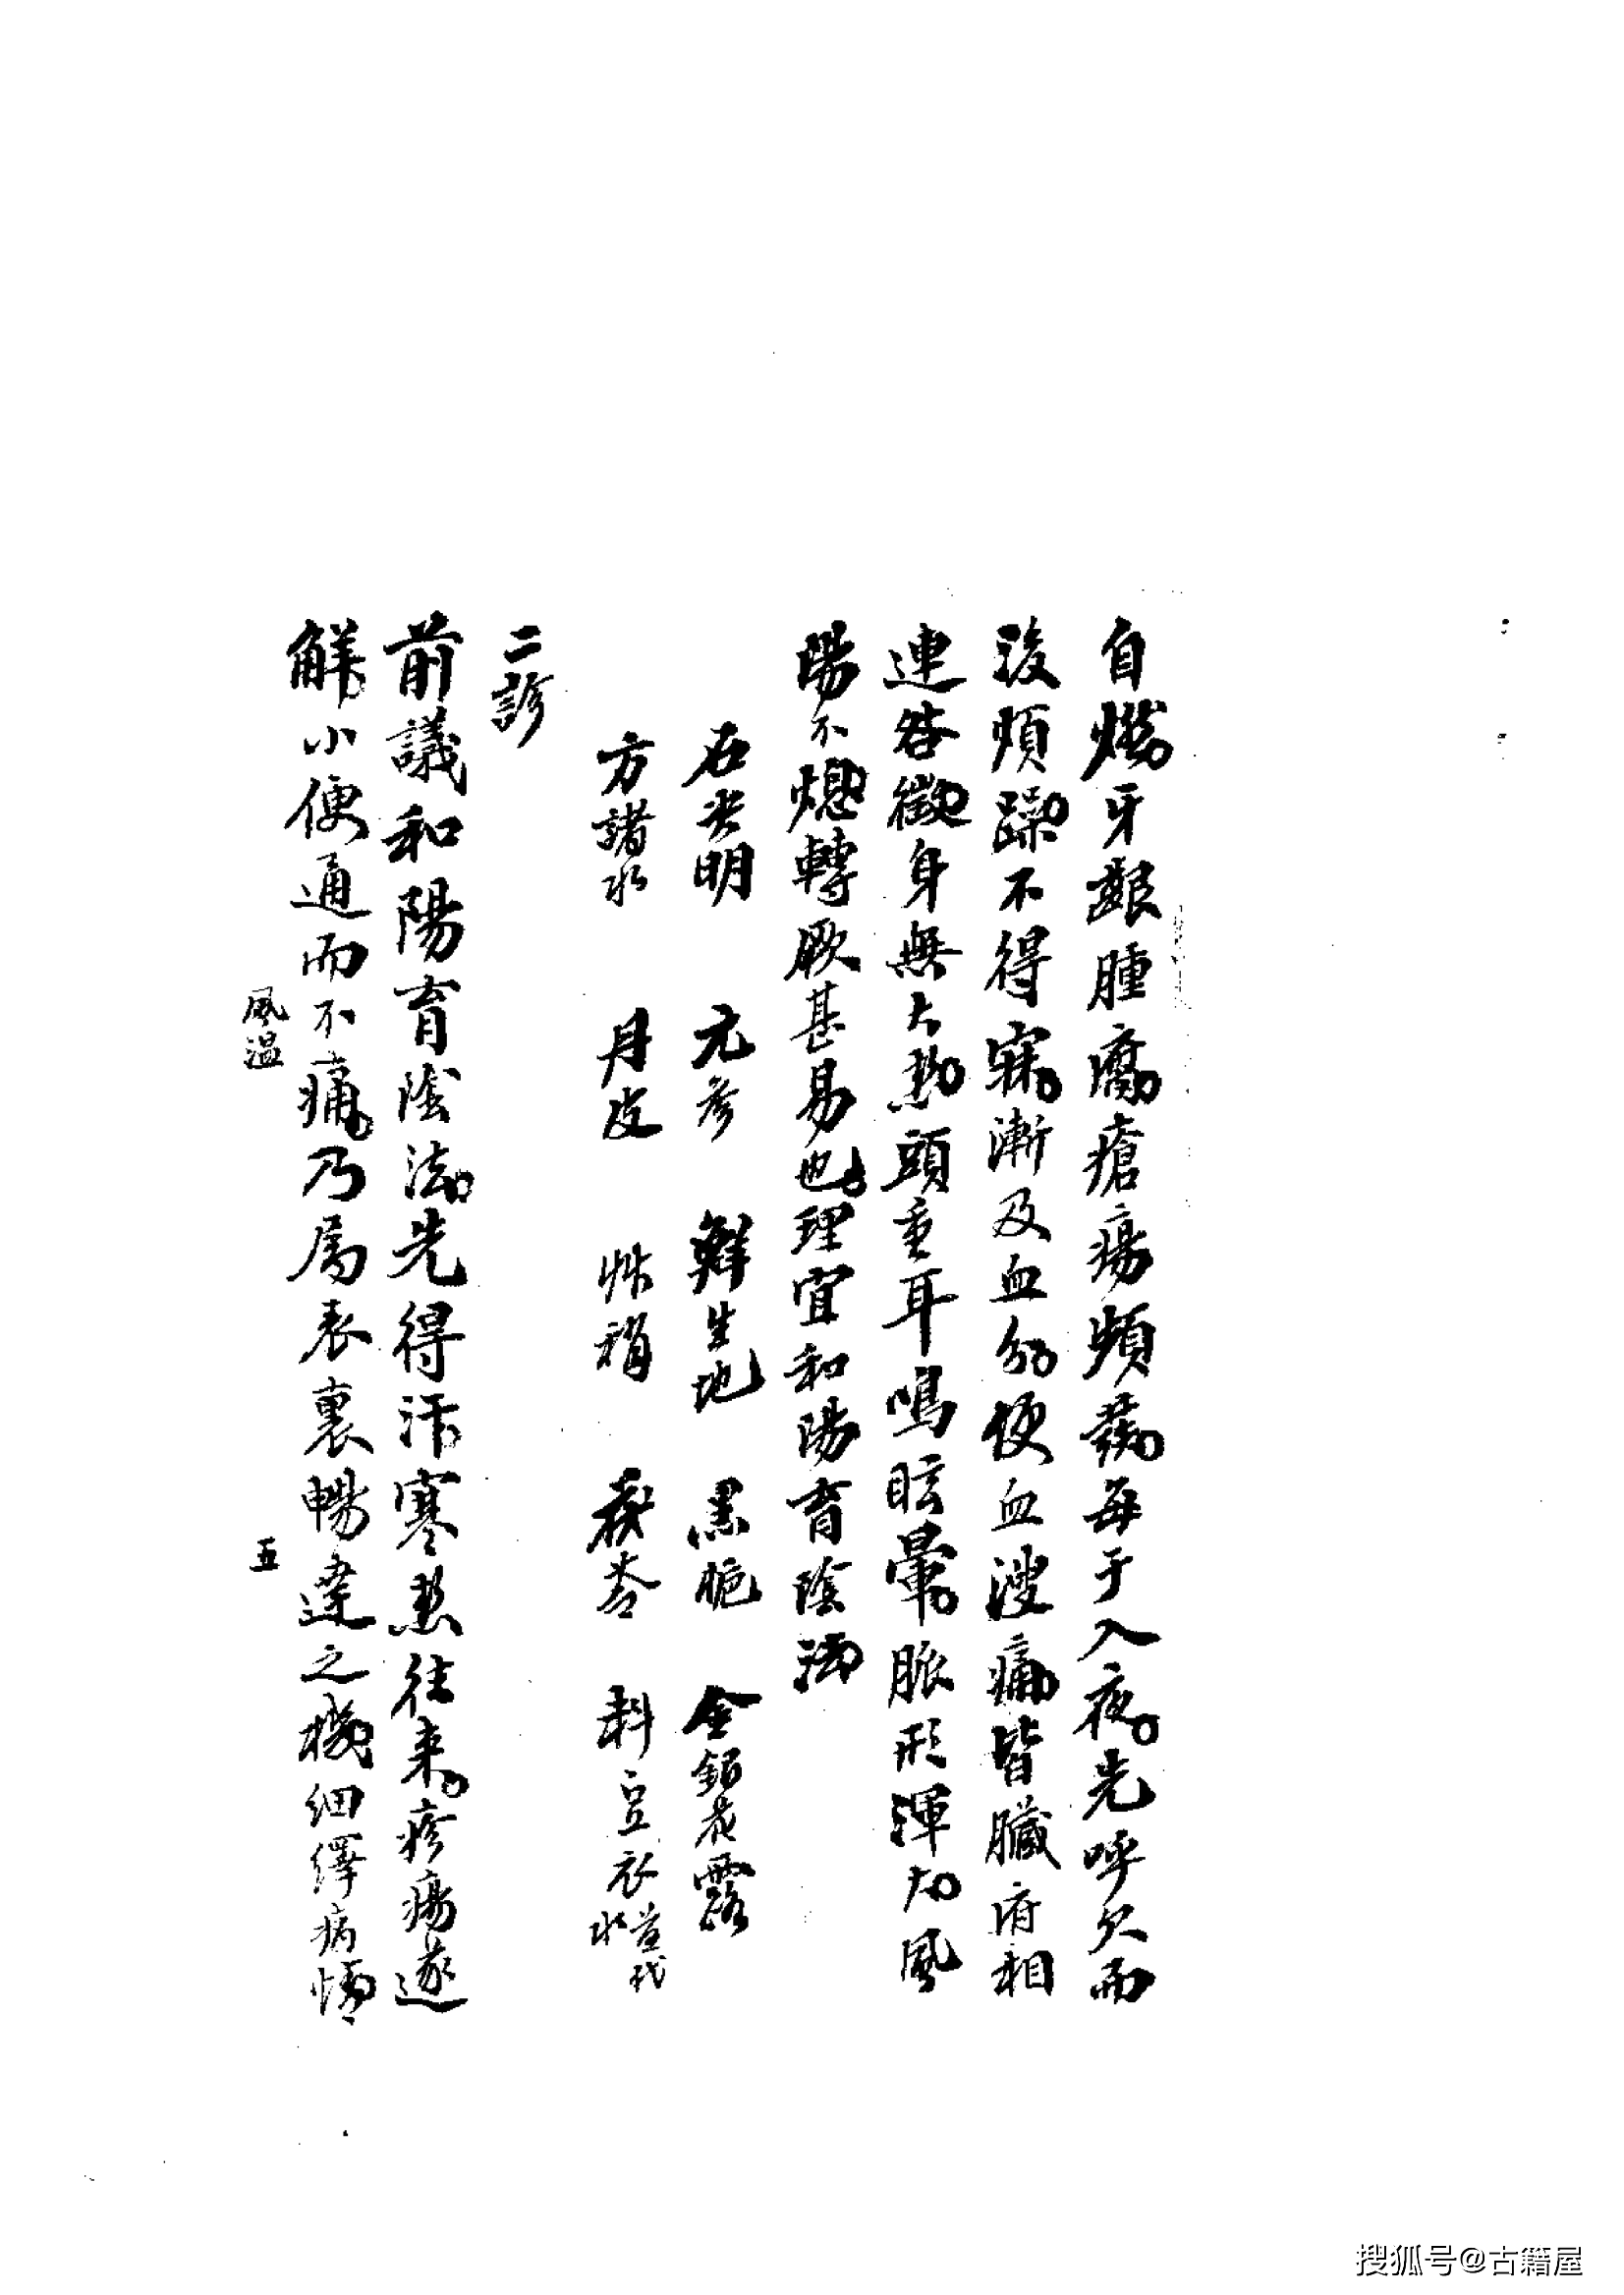 自燃牙齦腫腐瘡瘍頻發每于入夜先呼欠而
後煩躁不得寐漸及血分便血溲痛皆臟府相
連咎徵身無大熱頭重耳鳴眩暈脈形渾大風
陽不熄轉厥甚易也理宜和陽育陰法
石決明 元參 鮮生地 黑梔 金銀花露
方諸水 丹皮 艸梢 茯苓 料豆衣
二診
前議和陽育陰法先得汗寒熱往來疹瘍遂
解小便通而不痛乃屬表裏暢達之機細繹病情
風溫
五
搜狐号@古籍屋